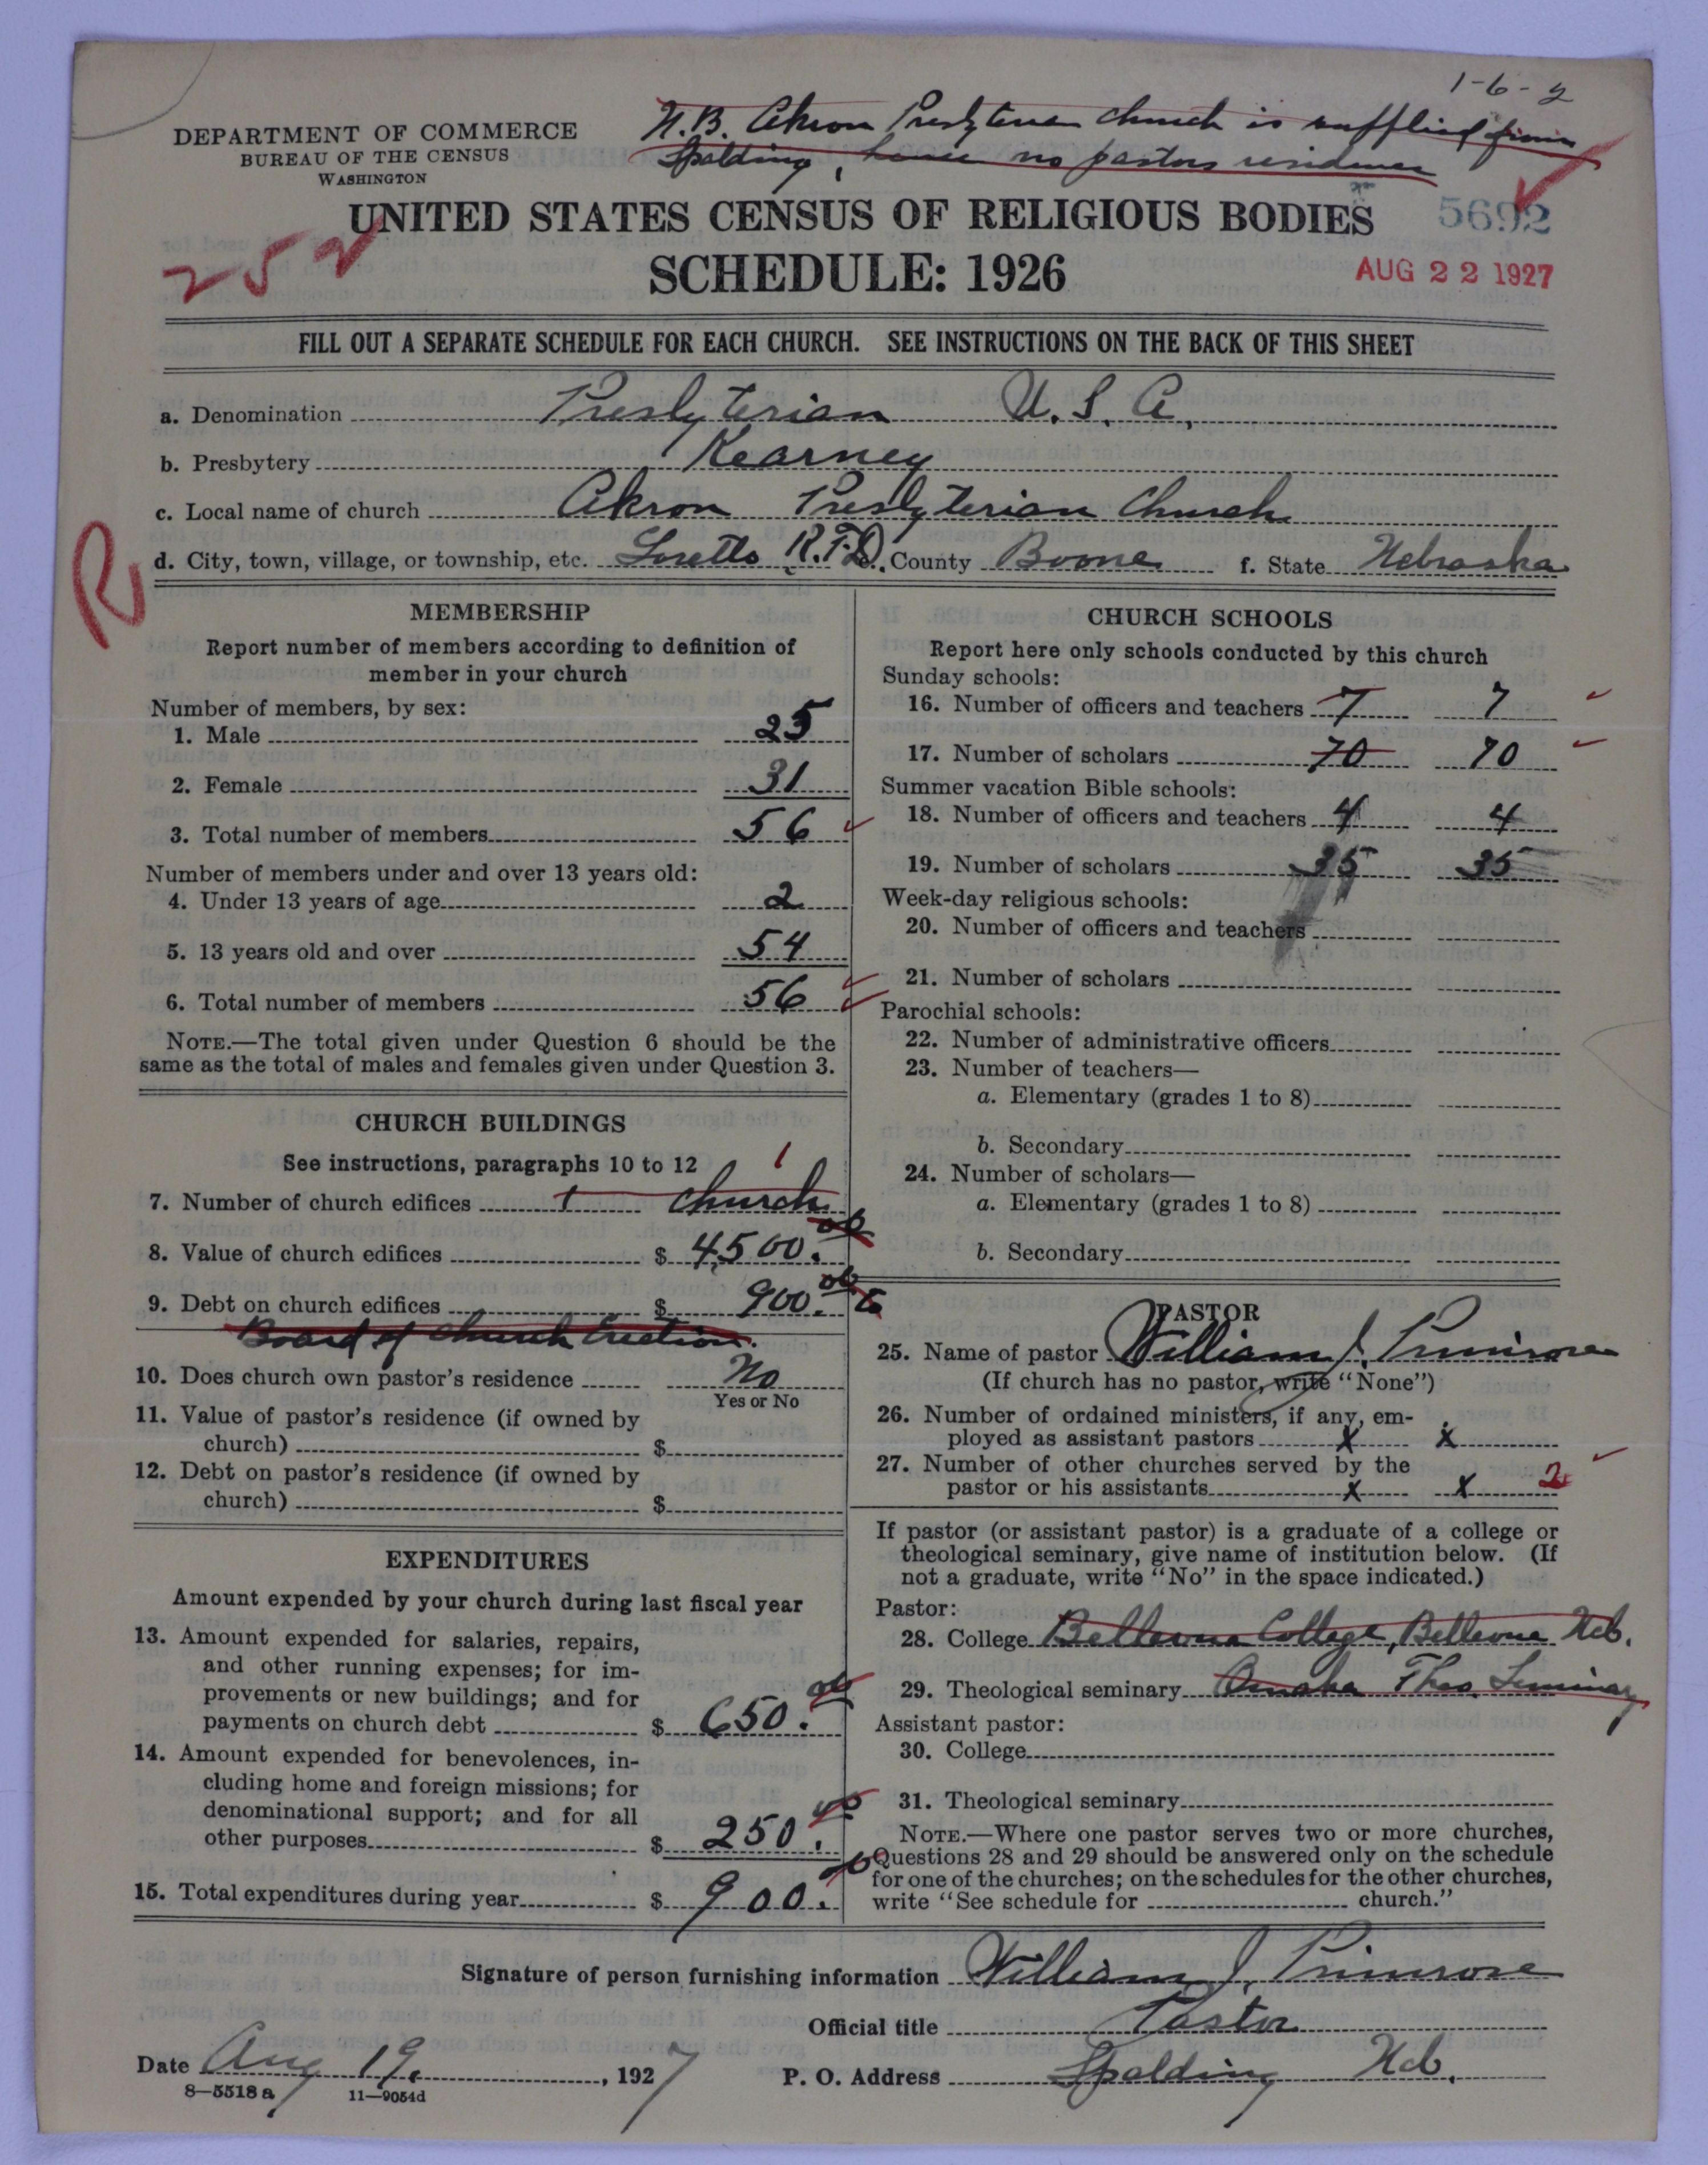 1-6-2
N.B. Akron Presbyterian church is supplied from
Spalding, hence no pastors residence
DEPARTMENT OF COMMERCE
BUREAU OF THE CENSUS
WASHINGTON
UNITED STATES CENSUS OF RELIGIOUS BODIES
5692
252
SCHEDULE: 1926
AUG 22 1927
FILL OUT A SEPARATE SCHEDULE FOR EACH CHURCH. SEE INSTRUCTIONS ON THE BACK OF THIS SHEET
a. Denomination Presbyterian U.S.A.
b. Presbytery Kearney
c. Local name of church Akron Presbyterian Church
R
d. City, town, village, or township, etc. Loretto R.F.D. e. County Boone f. State Nebraska
MEMBERSHIP
Report number of members according to definition of
member in your church
Number of members, by sex:
1. Male 25
2. Female 31
3. Total number of members 56
Number of members under and over 13 years old:
4. Under 13 years of age 2
5. 13 years old and over 54
6. Total number of members 56
NOTE.—The total given under Question 6 should be the
same as the total of males and females given under Question 3.
CHURCH BUILDINGS
See instructions, paragraphs 10 to 12
1
7. Number of church edifices 1 church
8. Value of church edifices $ 4500.00
9. Debt on church edifices $ 900.00
Board of Church Erection.
10. Does church own pastor's residence No
Yes or No
11. Value of pastor's residence (if owned by
church) $
12. Debt on pastor's residence (if owned by
church) $
EXPENDITURES
Amount expended by your church during last fiscal year
13. Amount expended for salaries, repairs,
and other running expenses; for im-
provements or new buildings; and for
payments on church debt $ 650.00
14. Amount expended for benevolences, in-
cluding home and foreign missions; for
denominational support; and for all
other purposes $ 250.00
15. Total expenditures during year $ 900.00
CHURCH SCHOOLS
Report here only schools conducted by this church
Sunday schools:
16. Number of officers and teachers 7 7
17. Number of scholars 70 70
Summer vacation Bible schools:
18. Number of officers and teachers 4 4
19. Number of scholars 35 35
Week-day religious schools:
20. Number of officers and teachers
21. Number of scholars
Parochial schools:
22. Number of administrative officers
23. Number of teachers—
a. Elementary (grades 1 to 8)
b. Secondary
24. Number of scholars—
a. Elementary (grades 1 to 8)
b. Secondary
PASTOR
25. Name of pastor William J. Primrose
(If church has no pastor, write "None")
26. Number of ordained ministers, if any, em-
ployed as assistant pastors x x
27. Number of other churches served by the
pastor or his assistants x x 2
If pastor (or assistant pastor) is a graduate of a college or
theological seminary, give name of institution below. (If
not a graduate, write "No" in the space indicated.)
Pastor:
28. College Bellevue College, Bellevue Neb.
29. Theological seminary Omaha Theo. Seminary
Assistant pastor:
30. College
31. Theological seminary
NOTE.—Where one pastor serves two or more churches,
Questions 28 and 29 should be answered only on the schedule
for one of the churches; on the schedules for the other churches,
write "See schedule for church."
Signature of person furnishing information William J. Primrose
Official title Pastor
Date Aug 19, 1927 P. O. Address Spalding Neb.
8—5518a 11—9054d